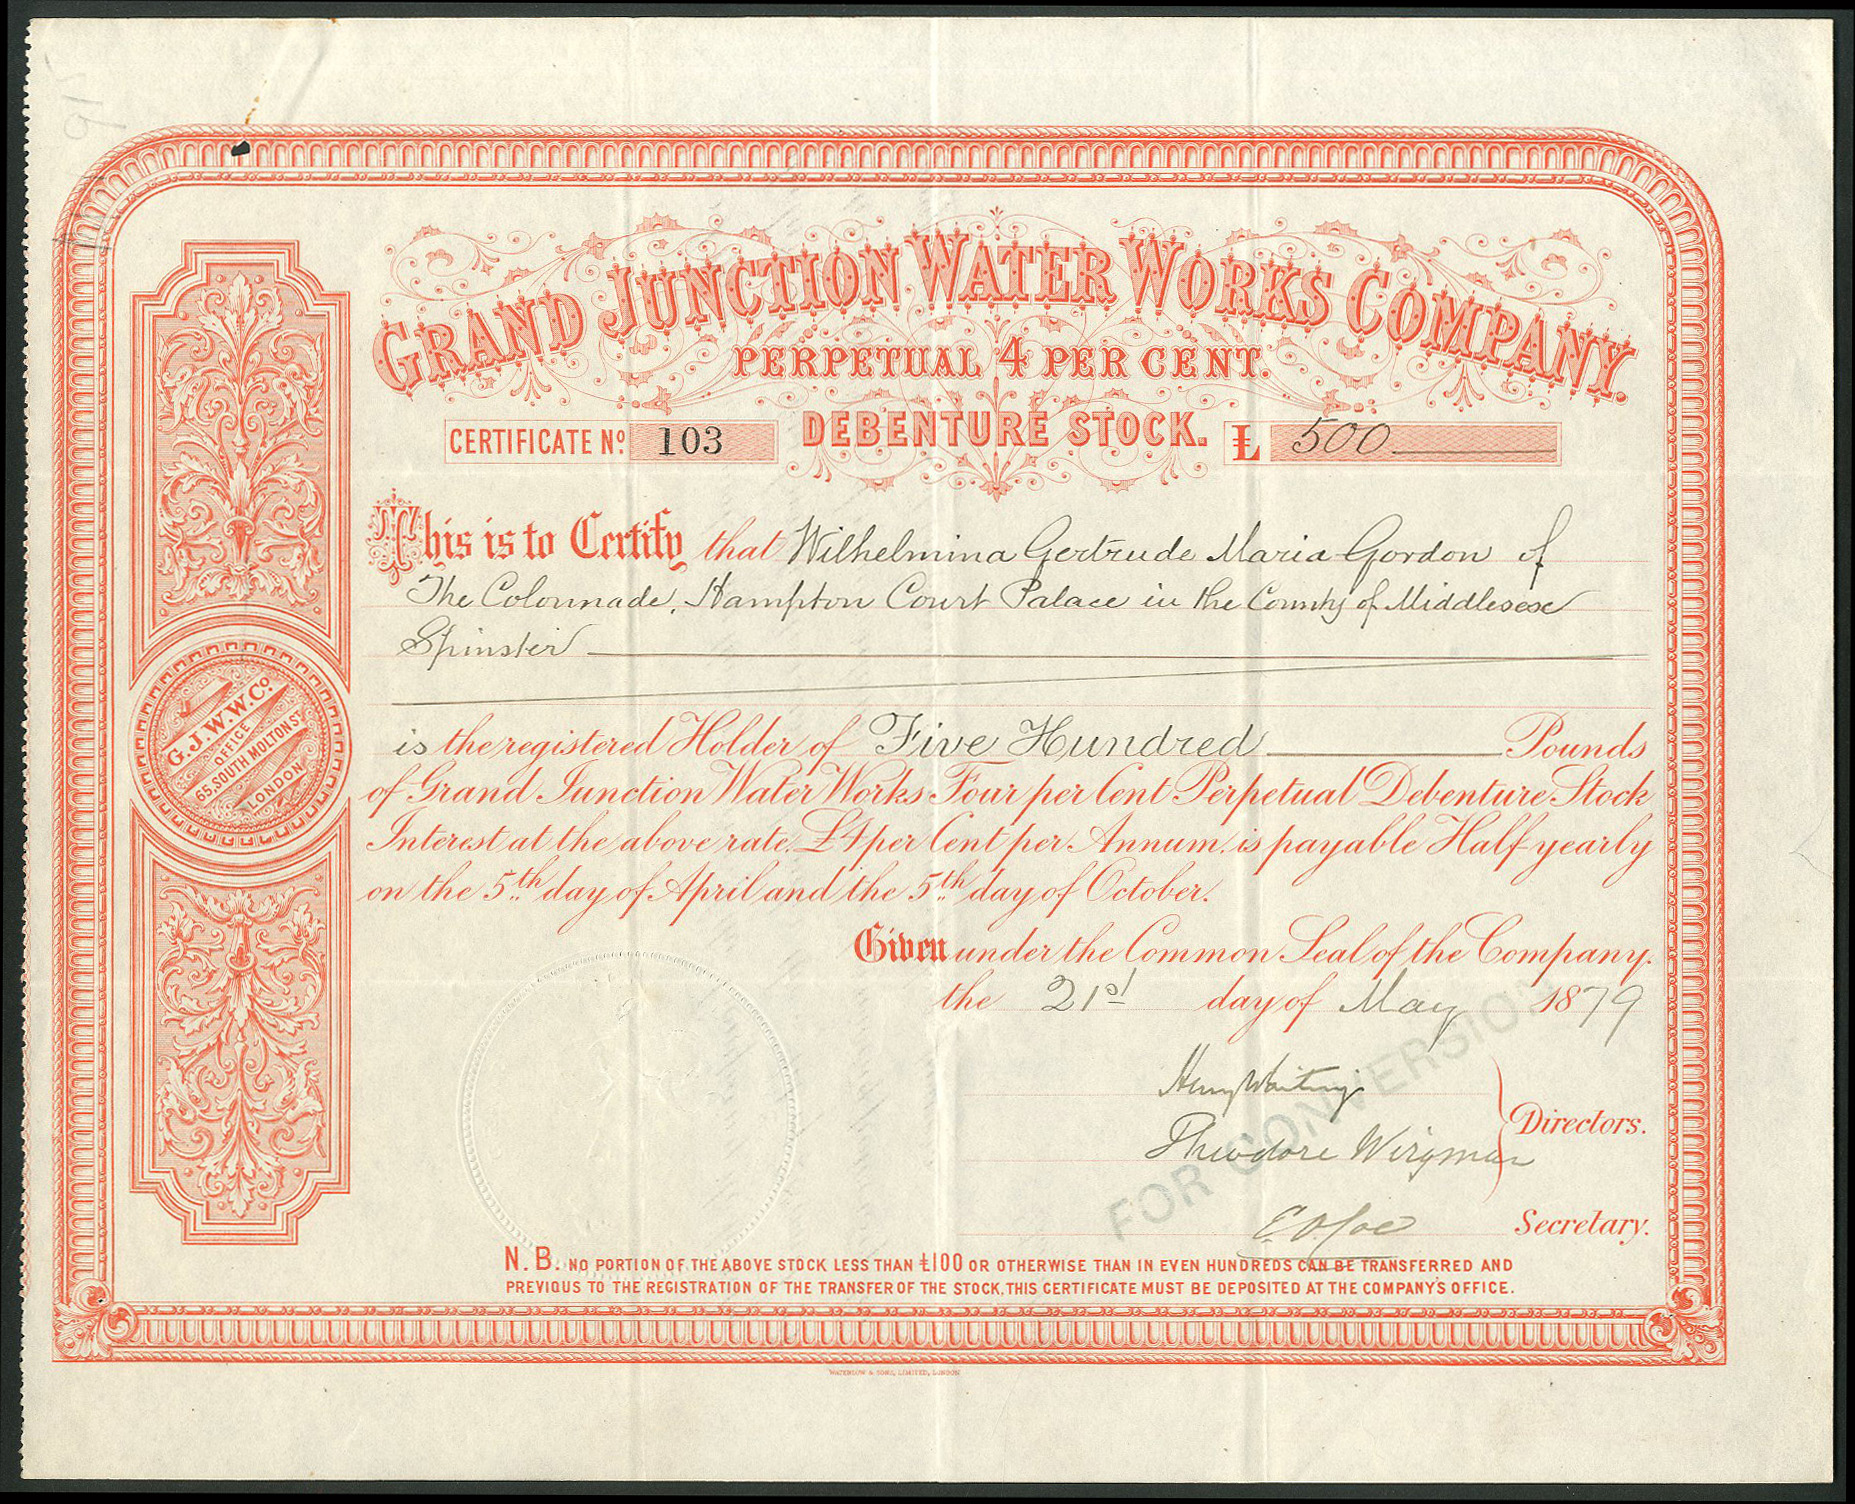 91
GRAND JUNCTION WATER WORKS COMPANY.
PERPETUAL 4 PER CENT.
DEBENTURE STOCK.
CERTIFICATE No. 103
£ 500
This is to Certify that Wilhelmina Gertrude Maria Gordon of
The Colonnade, Hampton Court Palace in the County of Middlesex
Spinster
is the registered Holder of Five Hundred Pounds
of Grand Junction Water Works Four per Cent Perpetual Debenture Stock
Interest at the above rate, £4 per Cent per Annum, is payable Half yearly
on the 5th day of April and the 5th day of October.
Given under the Common Seal of the Company.
the 21st day of May 1879
G.J.W.W.Co.
OFFICE
65, SOUTH MOLTON ST
LONDON
FOR CONVERSION
Theodore Wirgman
Directors.
Secretary.
N.B. NO PORTION OF THE ABOVE STOCK LESS THAN £100 OR OTHERWISE THAN IN EVEN HUNDREDS CAN BE TRANSFERRED AND
PREVIOUS TO THE REGISTRATION OF THE TRANSFER OF THE STOCK, THIS CERTIFICATE MUST BE DEPOSITED AT THE COMPANY'S OFFICE.
WATERLOW & SONS, LIMITED, LONDON